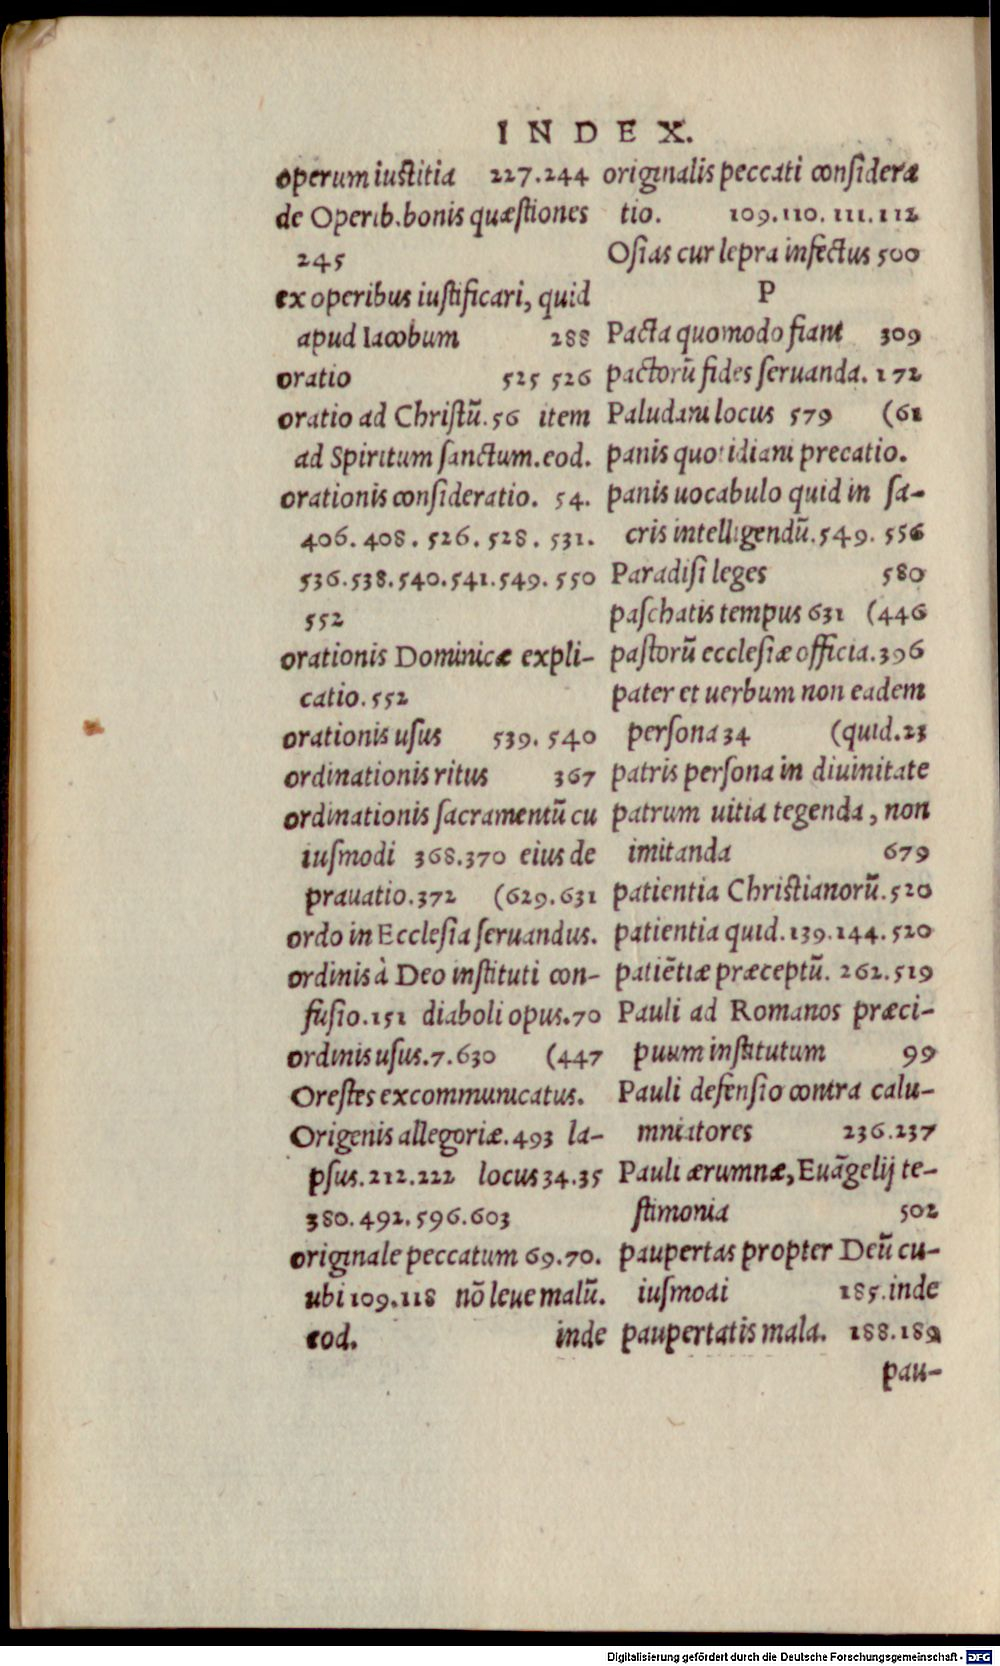 INDEX.
operum iustitia 227.244
de Operib.bonis quæstiones
245
ex operibus iustificari, quid
apud Iacobum 288
oratio 525 526
oratio ad Christū.56 item
ad Spiritum sanctum.eod.
orationis consideratio. 54.
406. 408. 526. 528. 531.
536.538.540.541.549. 550
552
orationis Dominicæ expli-
catio.552
orationis usus 539. 540
ordinationis ritus 367
ordinationis sacramentū cu
iusmodi 368.370 eius de
prauatio.372 (629.631
ordo in Ecclesia seruandus.
ordinis à Deo instituti con-
fusio.151 diaboli opus.70
ordinis usus.7.630 (447
Orestes excommunicatus.
Origenis allegoriæ.493 la-
psus.212.222 locus 34.35
380.492.596.603
originale peccatum 69.70.
ubi 109.118 nō leue malū.
eod. inde
originalis peccati consideræ
tio. 109.110. 111.112
Osias cur lepra infectus 500
P
Pacta quomodo fiant 309
pactorū fides seruanda. 172
Paludani locus 579 (61
panis quotidiani precatio.
panis uocabulo quid in sa-
cris intelligendū.549. 556
Paradisi leges 580
paschatis tempus 631 (446
pastorū ecclesiæ officia.396
pater et uerbum non eadem
persona 34 (quid.23
patris persona in diuinitate
patrum uitia tegenda, non
imitanda 679
patientia Christianorū.520
patientia quid.139.144.520
patiētiæ præceptū. 262.519
Pauli ad Romanos præci-
puum institutum 99
Pauli defensio contra calu-
mniatores 236.237
Pauli ærumnæ, Euāgelij te-
stimonia 502
paupertas propter Deū cu-
iusmodi 185.inde
paupertatis mala. 188.189
pau-
Digitalisierung gefördert durch die Deutsche Forschungsgemeinschaft - DFG